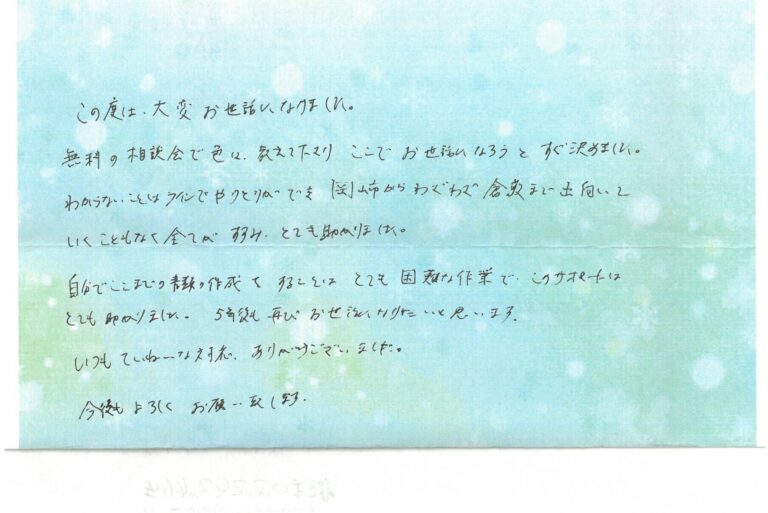 この度は、大変お世話になりました。
無料の相談会で色々、教えて下さり ここで お世話になろうと すぐ決めました。
わからないことはラインでやりとりができ 岡山市からわざわざ 倉敷まで出向いて
いくこともなく全てがすみ、とても助かりました。
自分でここまでの書類の作成を することは とても 困難な作業で、このサポートは
とても助かりました。 5年後も 再び お世話になりたいと思います。
いつも ていねいな対応、ありがとうございました。
今後も よろしく お願い致します。